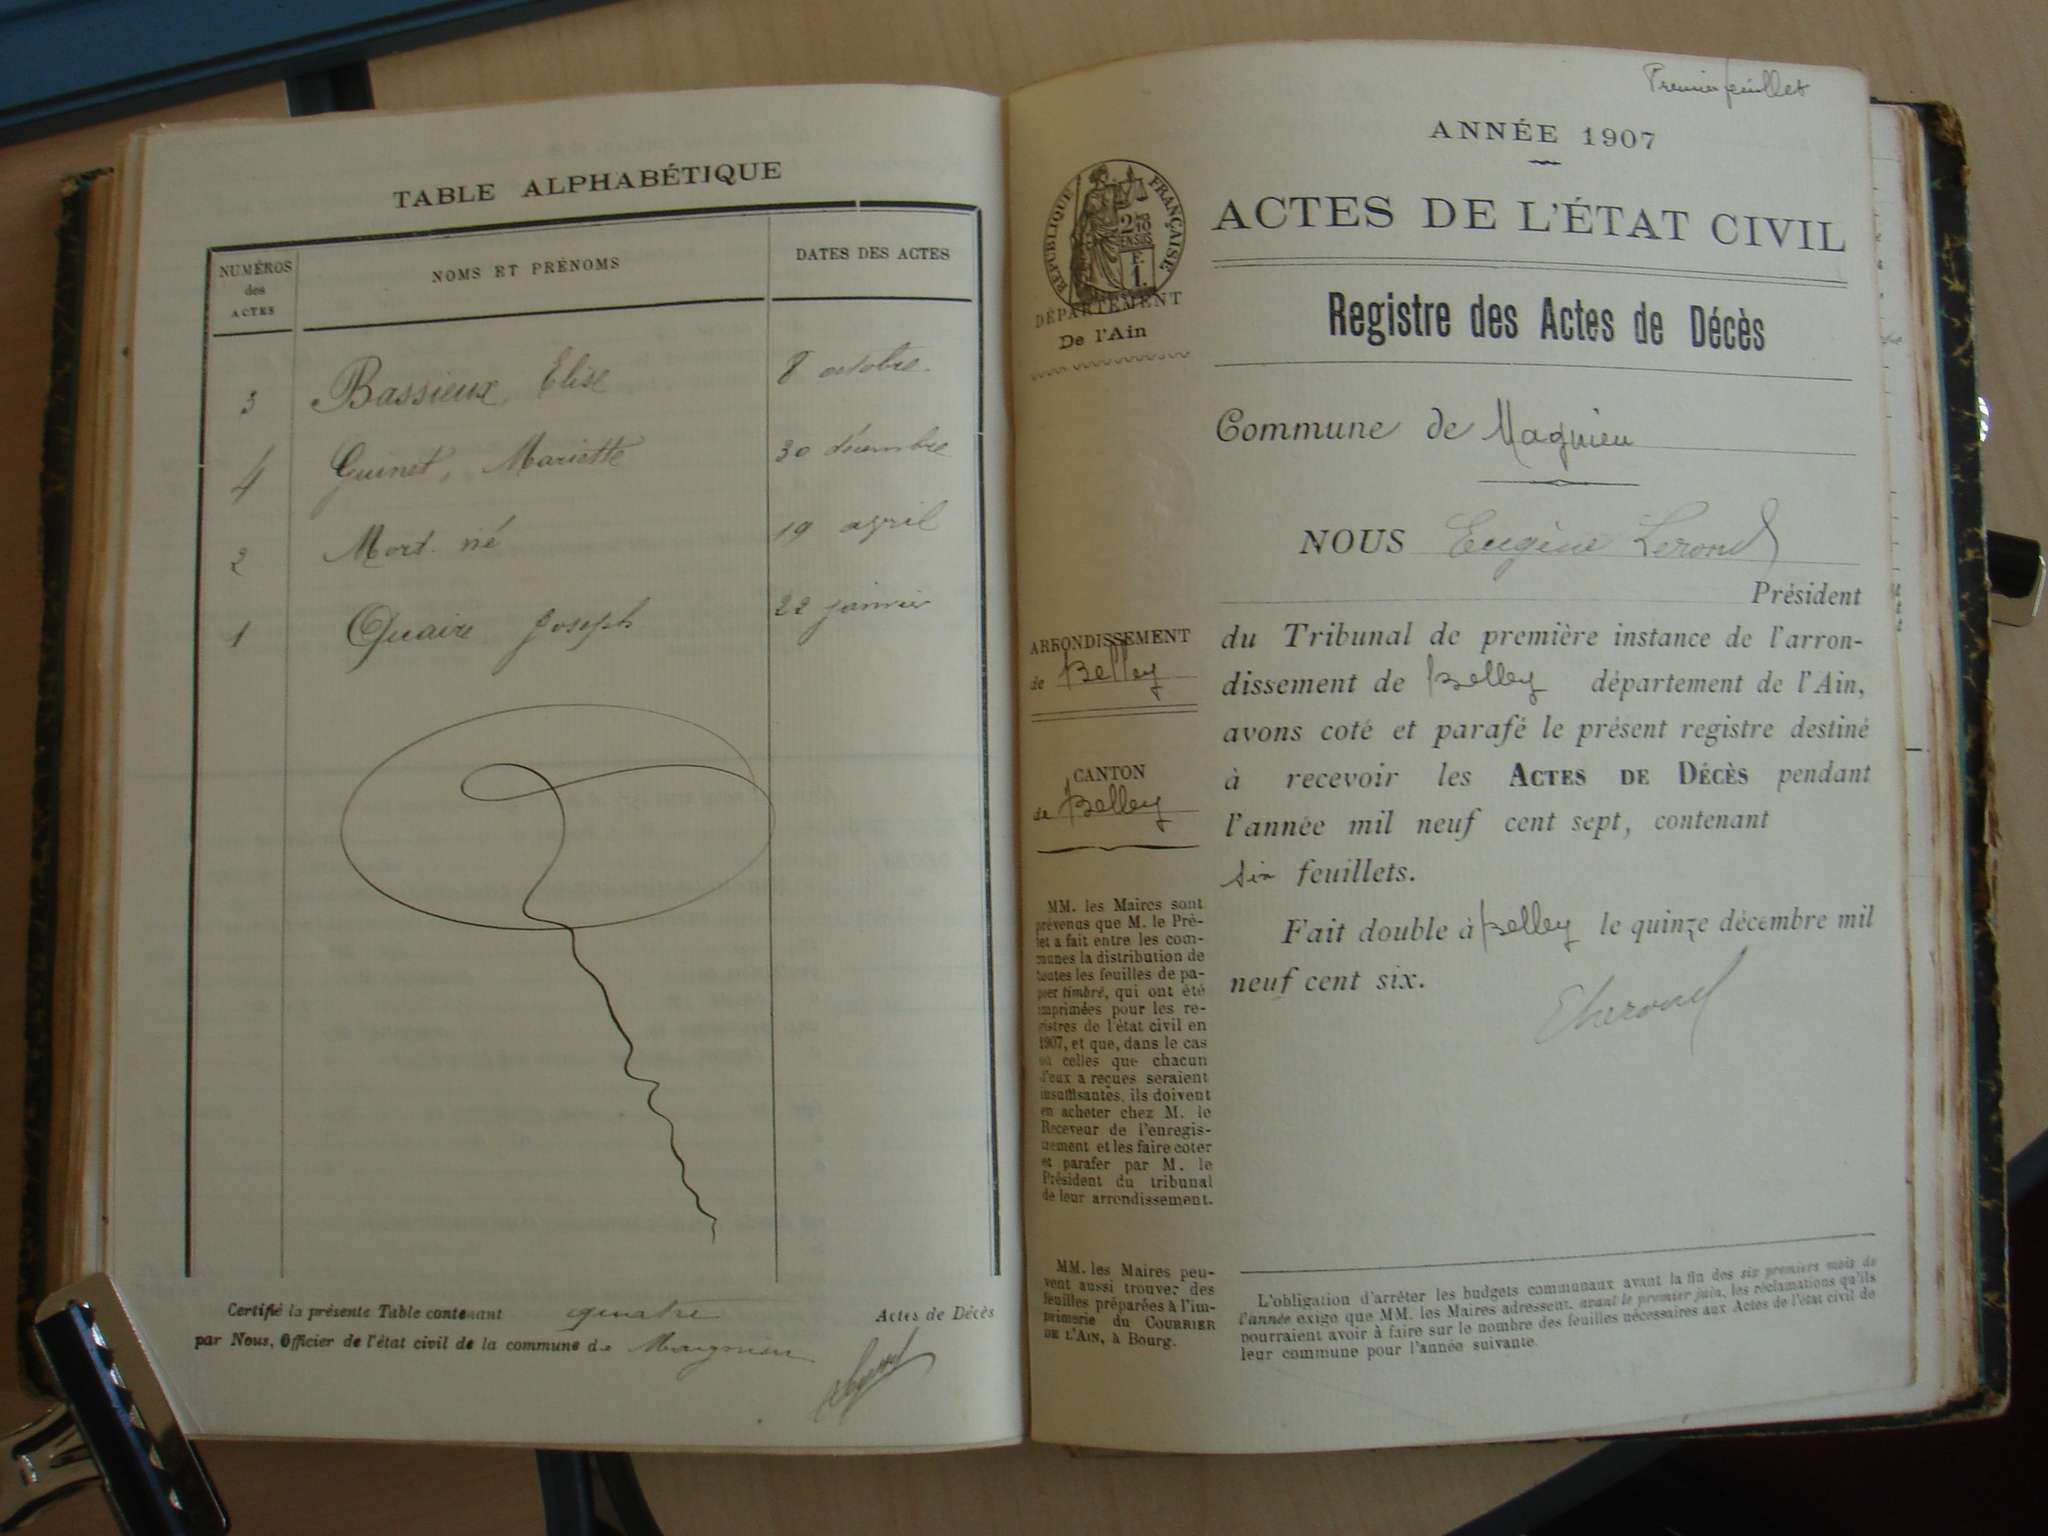 TABLE ALPHABÉTIQUE
NUMÉROS des ACTES
NOMS ET PRÉNOMS
DATES DES ACTES
3 Bassieux, Elise 8 octobre.
4 Guinet, Mariette 30 décembre
2 Mort-né 19 avril
1 Quaire Joseph 22 janvier
Certifié la présente Table contenant quatre Actes de Décès
par Nous, Officier de l'état civil de la commune de Magnieu
Premier feuillet
ANNÉE 1907
ACTES DE L'ÉTAT CIVIL
RÉPUBLIQUE FRANÇAISE
DÉPARTEMENT
De l'Ain
Registre des Actes de Décès
Commune de Magnieu
NOUS Eugène Lerond
Président
du Tribunal de première instance de l'arron-
dissement de Belley département de l'Ain,
avons coté et parafé le présent registre destiné
à recevoir les ACTES DE DÉCÈS pendant
l'année mil neuf cent sept, contenant
six feuillets.
Fait double à Belley le quinze décembre mil
neuf cent six.
ARRONDISSEMENT
de Belley
CANTON
de Belley
MM. les Maires sont
prévenus que M. le Pré-
fet a fait entre les com-
munes la distribution de
toutes les feuilles de pa-
pier timbré, qui ont été
imprimées pour les re-
gistres de l'état civil en
1907, et que, dans le cas
où celles que chacun
d'eux a reçues seraient
insuffisantes, ils doivent
en acheter chez M. le
Receveur de l'enregis-
trement et les faire coter
et parafer par M. le
Président du tribunal
de leur arrondissement.
MM. les Maires peu-
vent aussi trouver des
feuilles préparées à l'im-
primerie du COURRIER
DE L'AIN, à Bourg.
L'obligation d'arrêter les budgets communaux avant la fin des six premiers mois de
l'année exige que MM. les Maires adressent, avant le premier juin, les réclamations qu'ils
pourraient avoir à faire sur le nombre des feuilles nécessaires aux Actes de l'état civil de
leur commune pour l'année suivante.